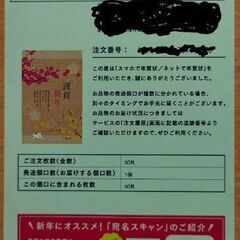 注文番号：
謹賀
新年
この度は「スマホで年賀状／ネットで年賀状」を
ご利用いただき、誠にありがとうございました。
お品物の発送個口が複数に分かれている場合、
別々のタイミングでお手元に届くことがございます。
お品物のお届け状況につきましては
サービスの「注文履歴」画面に記載の追跡番号より
ご確認いただけますので、ぜひご利用ください。
ご注文枚数(全数) 50枚
発送個口数(お届けする個口数) 1個
この個口に含まれる枚数 50枚
新年にオススメ！「宛名スキャン」のご紹介